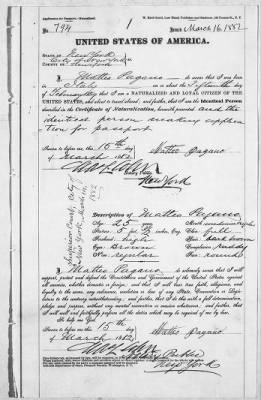 No. 794
1
Issued March 16, 1882
UNITED STATES OF AMERICA.
STATE OF New York
COUNTY OF New York
I, Matteo Pagano, do swear that I was born
in Italy on or about the Fifteenth day
of February that I am a NATURALIZED AND LOYAL CITIZEN OF THE
UNITED STATES, and about to travel abroad; and further, that I am the Identical Person
described in the Certificate of Naturalization, herewith presented and the
identical person making applica
tion for passport
Sworn to before me, this 15th day
of March 1882
Matteo Pagano
New York
Superior Court, City
of New York, March
1882
Description of Matteo Pagano
Age: 25
Stature: 5 feet
Mouth: medium
Chin: full
Forehead: high
Hair: dark brown
Eyes: Brown
Complexion:
Nose: regular
Face: round
I, Matteo Pagano, do solemnly swear that I will
support, protect and defend the Constitution and Government of the United States against
all enemies, whether domestic or foreign; and that I will bear true faith, allegiance, and
loyalty to the same, any ordinance, resolution or law of any State, Convention or Legis-
lature to the contrary notwithstanding; and further, that I do this with a full determination,
pledge and purpose, without any mental reservation or evasion whatsoever; and further, that
I will well and faithfully perform all the duties which may be required of me by law.
So help me God.
Sworn to before me, this 15th
day
of March 1882
Matteo Pagano
Notary Public
New York